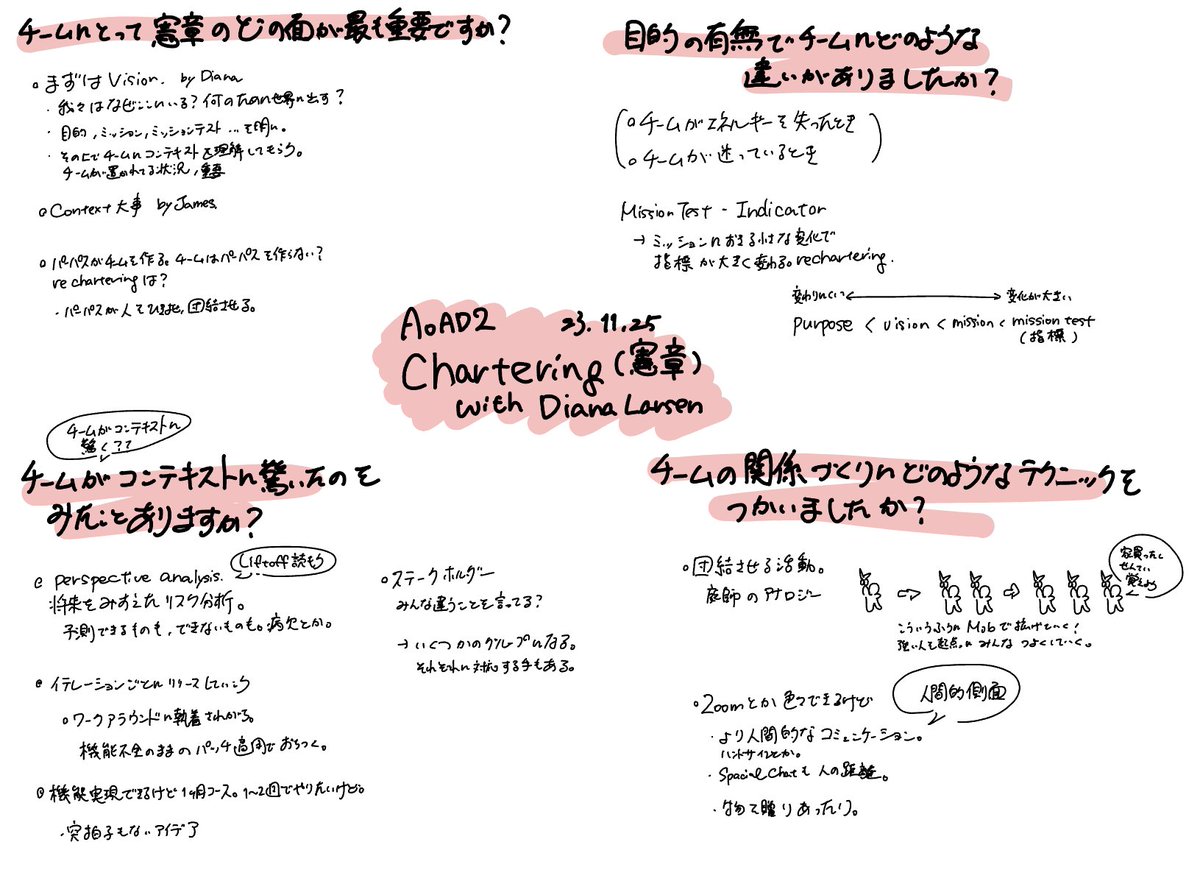 チームにとって憲章のどの面が最も重要ですか?
まずはVision. by Diana
・我々はなぜここにいる?何のために世界に出す?
・目的,ミッション,ミッションテスト...を問い。
・その上でチームにコンテキストを理解してもらう。
チームが置かれてる状況,重要
Context大事 by James.
パーパスがチームを作る。チームはパーパスを作らない?
re charteringは?
・パーパスが人をひきよせ,団結させる。
目的の有無でチームにどのような
違いがありましたか?
チームがエネルギーを失ったとき
チームが迷っているとき
Mission Test - Indicator
→ ミッションにおける小さな変化で
指標が大きく変わる。rechartering.
変わりにくい ←→ 変化が大きい
purpose < vision < mission < mission test
(指標)
AoAD2 23.11.25
Chartering(憲章)
with Diana Larsen
チームがコンテキストに
驚く??
チームがコンテキストに驚いたのを
みたことありますか?
Liftoff読もう
perspective analysis.
将来をみすえたリスク分析。
予測できるものも,できないものも。病欠とか。
イテレーションごとにリリースしていこう
ワークアラウンドに執着されがち。
機能不全のままのパッチ適用でおちつく。
機能実現できるけど1ヶ月コース。1~2週でやりたいけど。
・突拍子もないアイデア
ステークホルダー
みんな違うことを言ってる?
→ いくつかのグループになる。
それぞれに対応する手もある。
チームの関係づくりにどのようなテクニックを
つかいましたか?
団結させる活動。
庭師のアナロジー
家買ったら
せんてい
覚えよう
こういうふうにMobで拡げていく!
強い人を起点にみんなつよくしていく。
Zoomとか色々できるけど
人間的側面
・より人間的なコミュニケーション。
ハンドサインとか。
・Spacial Chatも人の距離。
・物を贈りあったり。